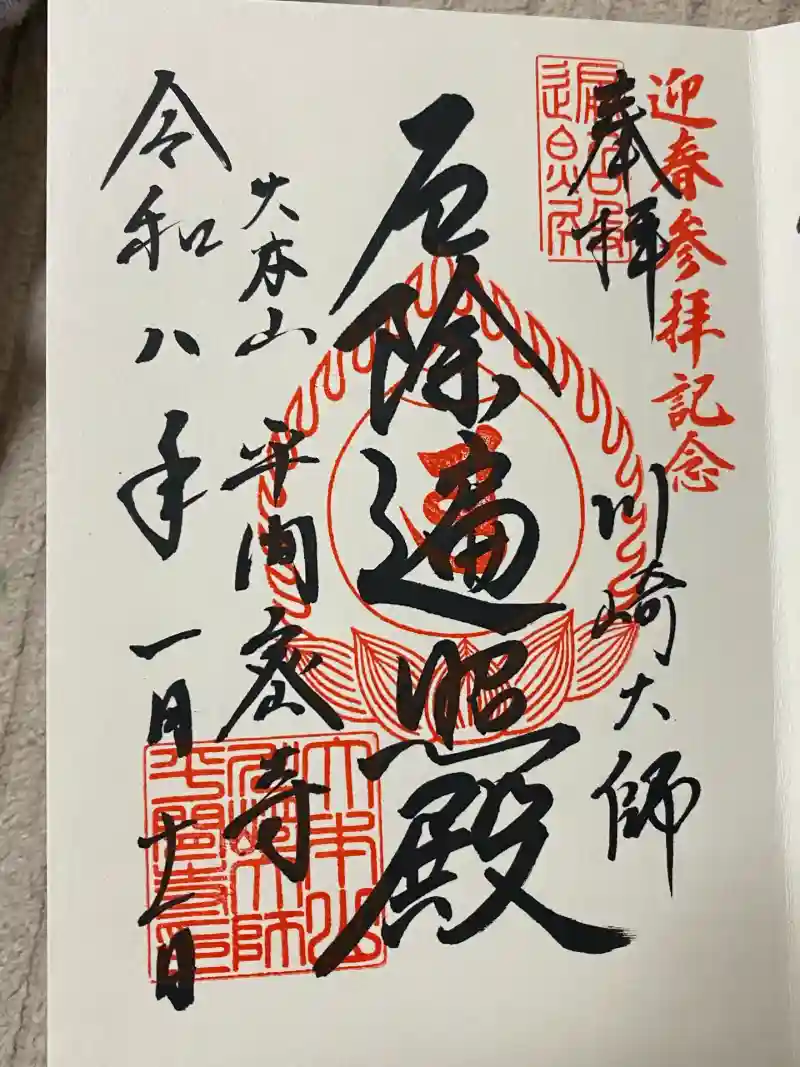 迎春参拝記念
奉拝
遍照殿
川崎大師
厄除遍照殿
大本山 平間寺
令和八年 一月十一日
大本山
川崎大師
平間寺印